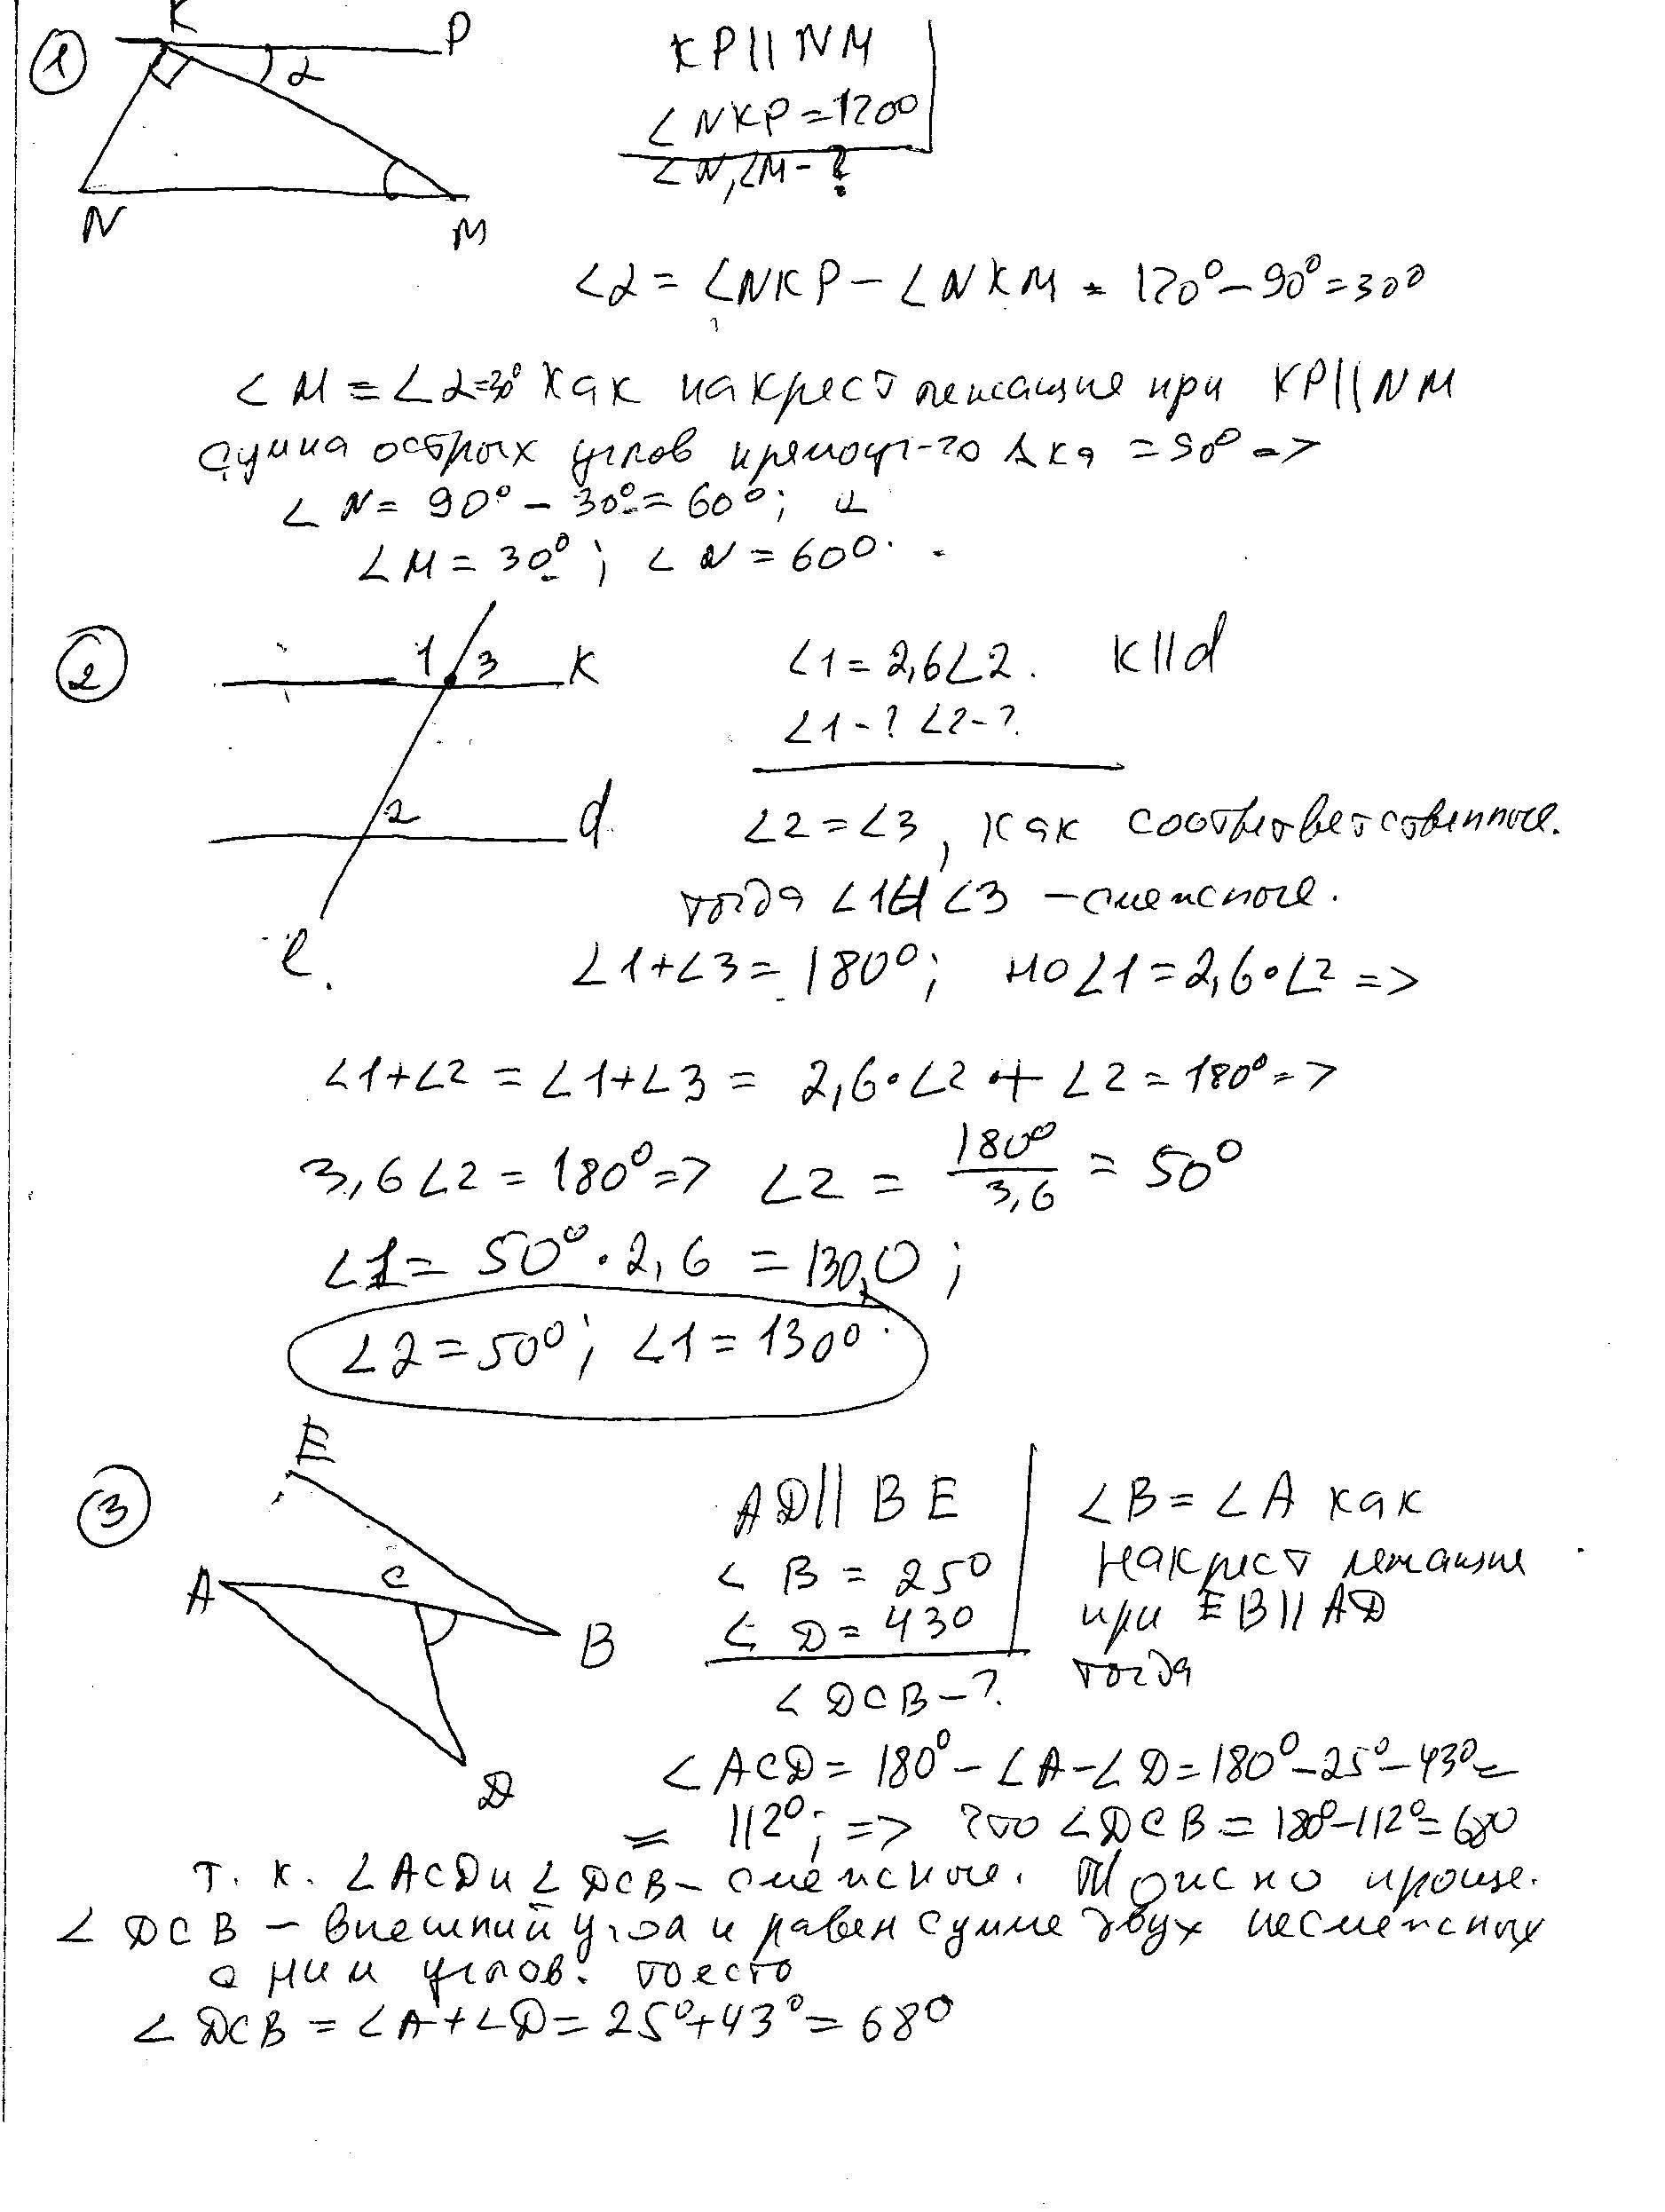 1
K
P
KP || NM
∠2
∠NKP = 120°
∠N, ∠M - ?
N
M
∠2 = ∠NKP - ∠NKM = 120° - 90° = 30°
∠M = ∠2 = 30° как накрест лежащие при KP || NM
Сумма острых углов прямоуг-го Δка = 90° =>
∠N = 90° - 30° = 60°; и
∠M = 30°; ∠N = 60°.
2
1
3
K
∠1 = 2,6∠2. K || d
∠1 - ? ∠2 - ?
2
d
∠2 = ∠3, как соответственные.
тогда ∠1 и ∠3 - смежные.
l
∠1 + ∠3 = 180°; но ∠1 = 2,6·∠2 =>
∠1 + ∠2 = ∠1 + ∠3 = 2,6·∠2 + ∠2 = 180° =>
3,6∠2 = 180° => ∠2 = 180°/3,6 = 50°
∠1 = 50°·2,6 = 130,0;
∠2 = 50°; ∠1 = 130°.
3
E
A
C
B
D
AD || BE
∠B = 25°
∠D = 43°
∠DCB - ?
∠B = ∠A как
накрест лежащие
при EB || AD
тогда
∠ACD = 180° - ∠A - ∠D = 180° - 25° - 43° =
= 112°; => что ∠DCB = 180° - 112° = 68°
т. к. ∠ACD и ∠DCB - смежные. Можно проще.
∠DCB - внешний угол и равен сумме двух несмежных
с ним углов. то есть
∠DCB = ∠A + ∠D = 25° + 43° = 68°